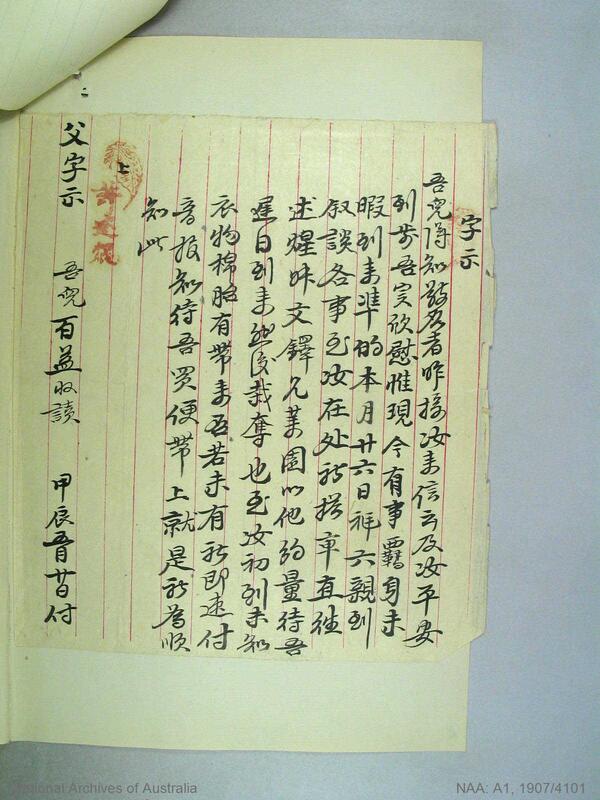 字示
吾兒得知茲啟者昨接汝來信云及汝平安
到步吾実欣慰惟現今有事羈身未
暇到來準的本月廿六日拜六親到
叙談各事至汝在处祈搭車直往
述煋
文鐸兄菜園以他約量待吾
遲日到來然後裁奪也至汝初到未知
衣物棉胎有帶來否若未有祈即速付
音报知待吾買便帶上就是祈為順
知此
上
父字示 吾兒百益收讀 甲辰 付
National Archives of Australia
NAA: A1, 1907/4101